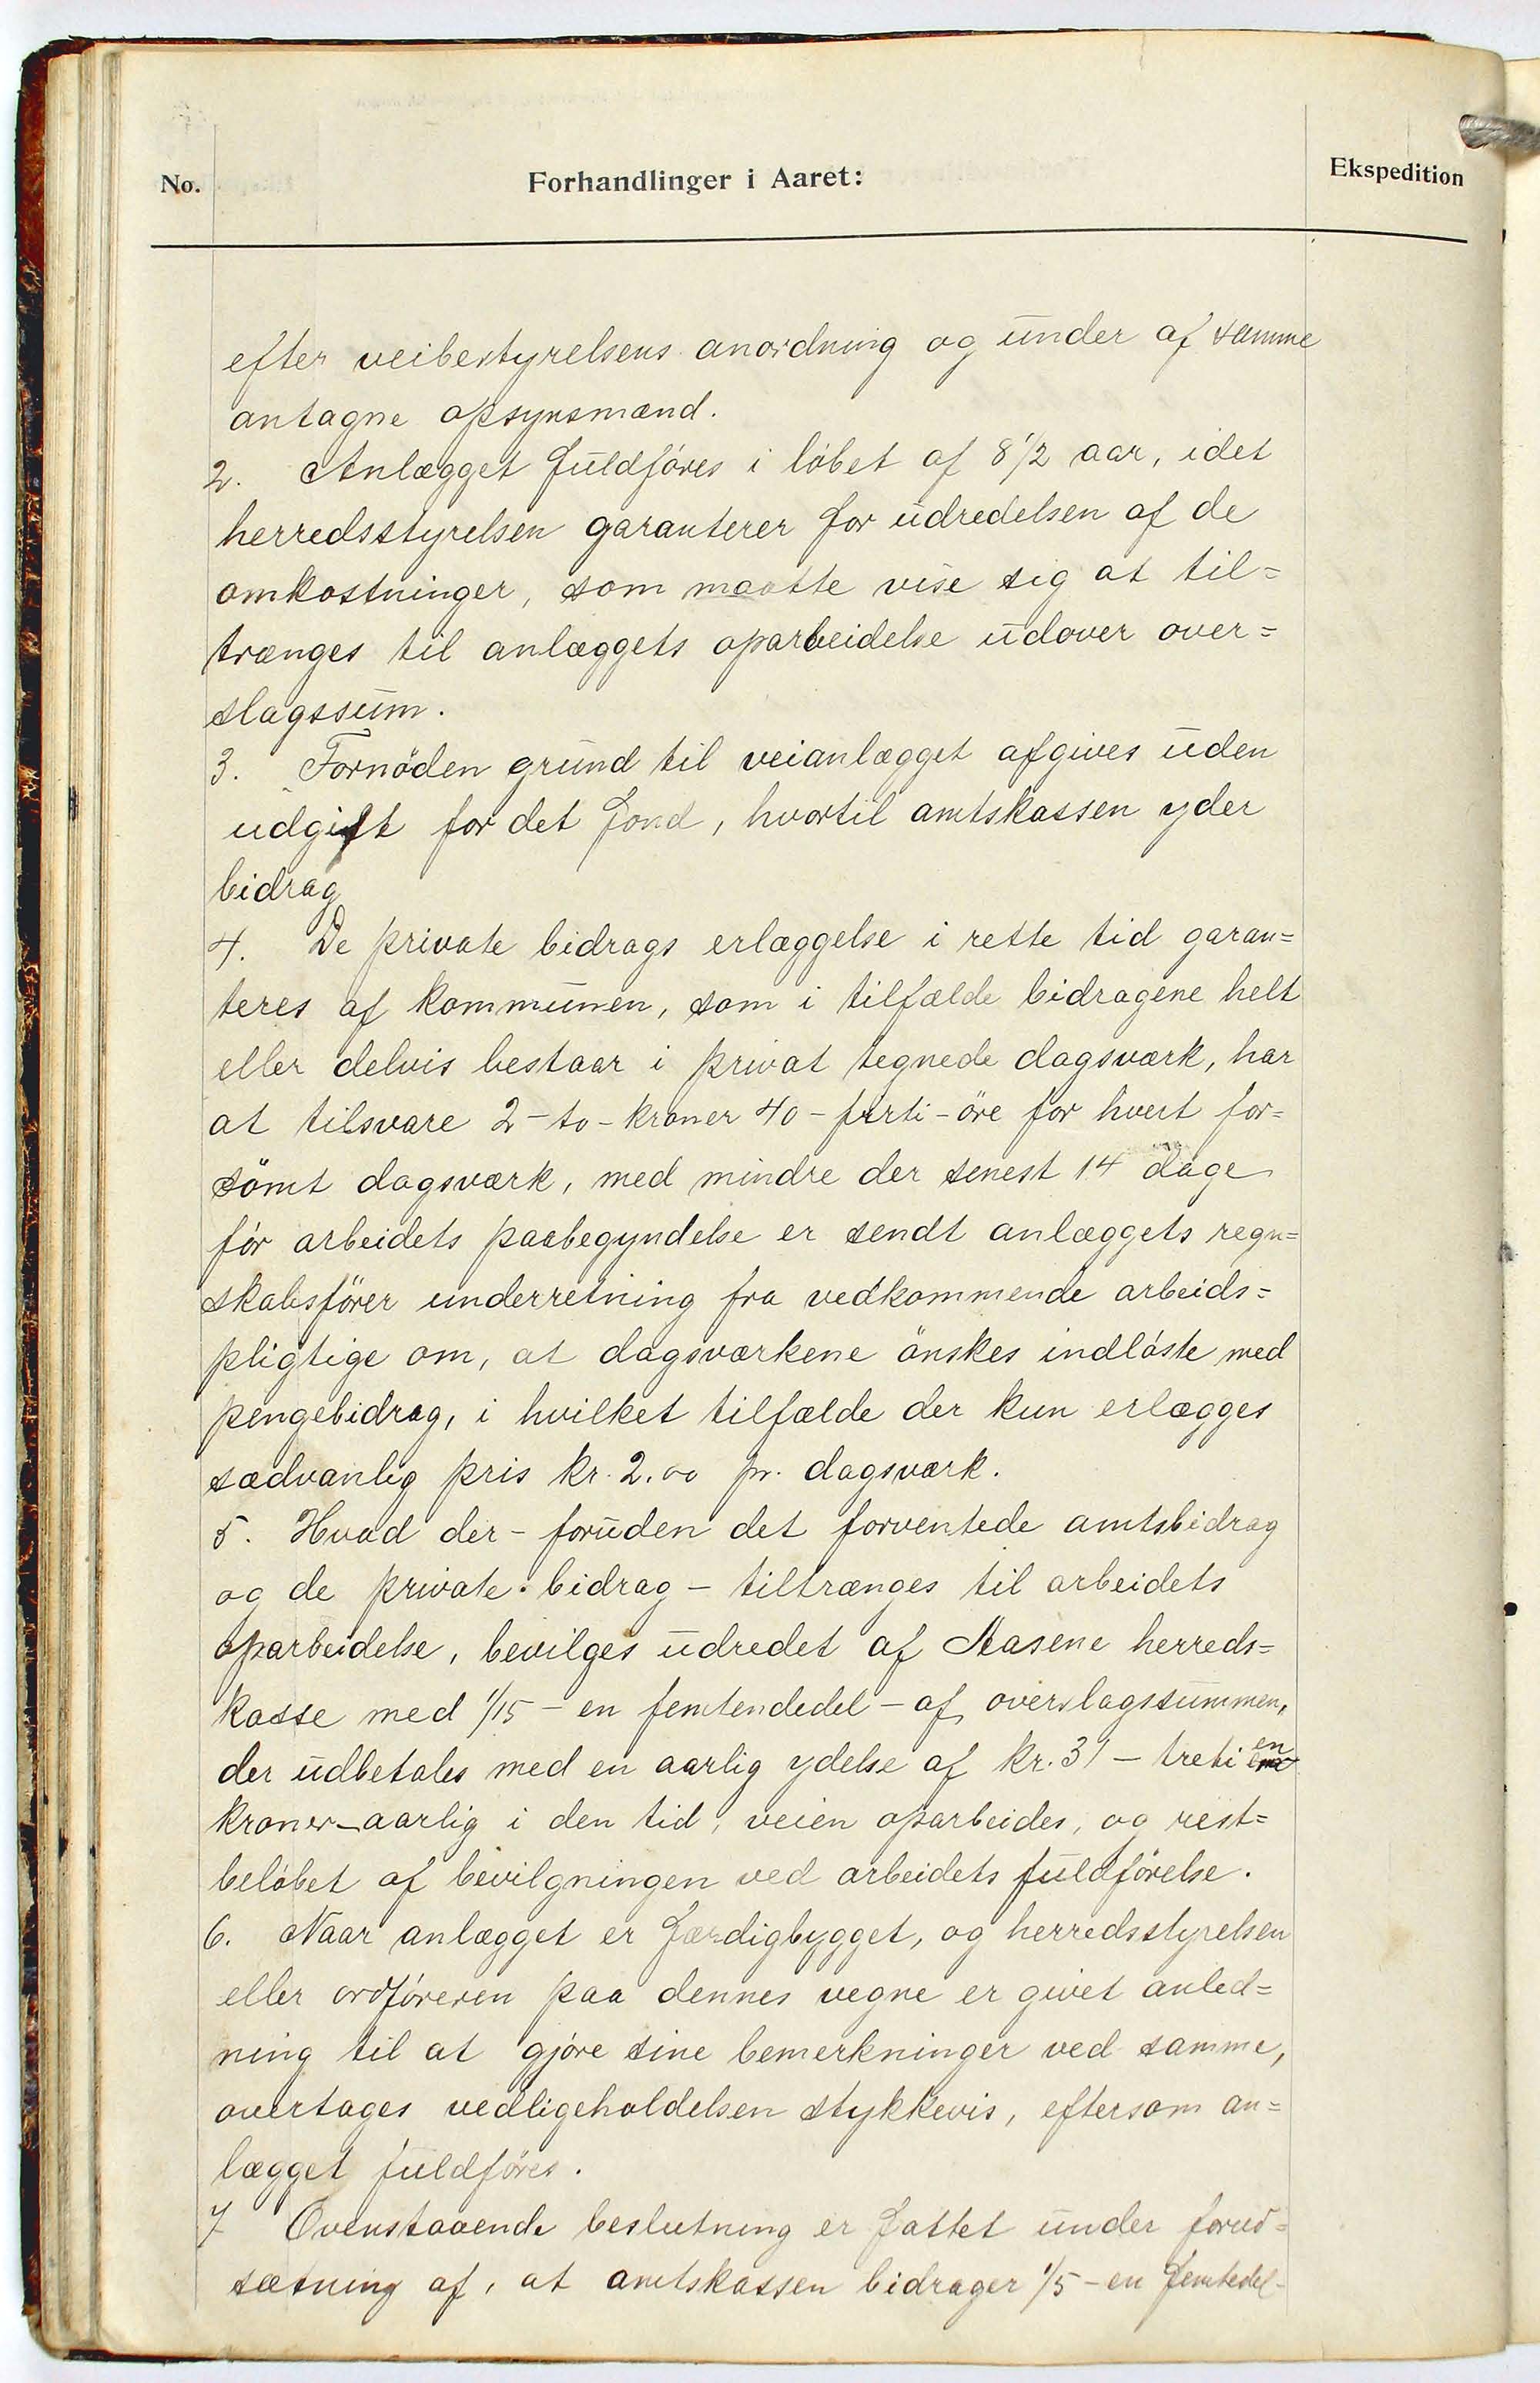 No.
Forhandlinger i Aaret:
Ekspedition
efter veibestyrelsens anordning og under af samme
antagne opsynsmænd.
2. Anlægget fuldföres i löbet af 8 1/2 aar, idet
herredsstyrelsen garanterer for udredelsen af de
omkostninger, som maatte vise sig at til=
trænges til anlæggets oparbeidelse udover over=
slagssum.
3. Fornöden grund til veianlægget afgives uden
udgift for det fond, hvortil amtskassen yder
bidrag
4. De private bidrags erlæggelse i rette tid garan=
teres af kommunen, som i tilfælde bidragene helt
eller delvis bestaar i privat tegnede dagsværk, har
at tilsvare 2 - to - kroner 40 - firti - öre for hvert for=
sömt dagsværk, med mindre der senest 14 dage
för arbeidets paabegyndelse er sendt anlæggets regn=
skabsförer underretning fra vedkommende arbeids=
pligtige om, at dagsværkene önskes indlöste med
pengebidrag, i hvilket tilfælde der kun erlægges
sædvanlig pris kr. 2.00 pr. dagsværk.
5. Hvad der - foruden det forventede amtsbidrag
og de private bidrag - tiltrænges til arbeidets
oparbeidelse, bevilges udredet af Aasene herreds=
kasse med 1/15 - en femtendedel - af overslagssummen,
der udbetales med en aarlig ydelse af kr. 31 - treti en
kroner - aarlig i den tid, veien oparbeides, og rest=
belöbet af bevilgningen ved arbeidets fuldförelse.
6. Naar anlægget er færdigbygget, og herredsstyrelsen
eller ordföreren paa dennes vegne er givet anled=
ning til at gjöre sine bemerkninger ved samme,
overtages vedligeholdelsen stykkevis, eftersom an=
lægget fuldföres.
7 Ovenstaaende beslutning er fattet under forud=
sætning af, at amtskassen bidrager 1/5 - en femtedel -